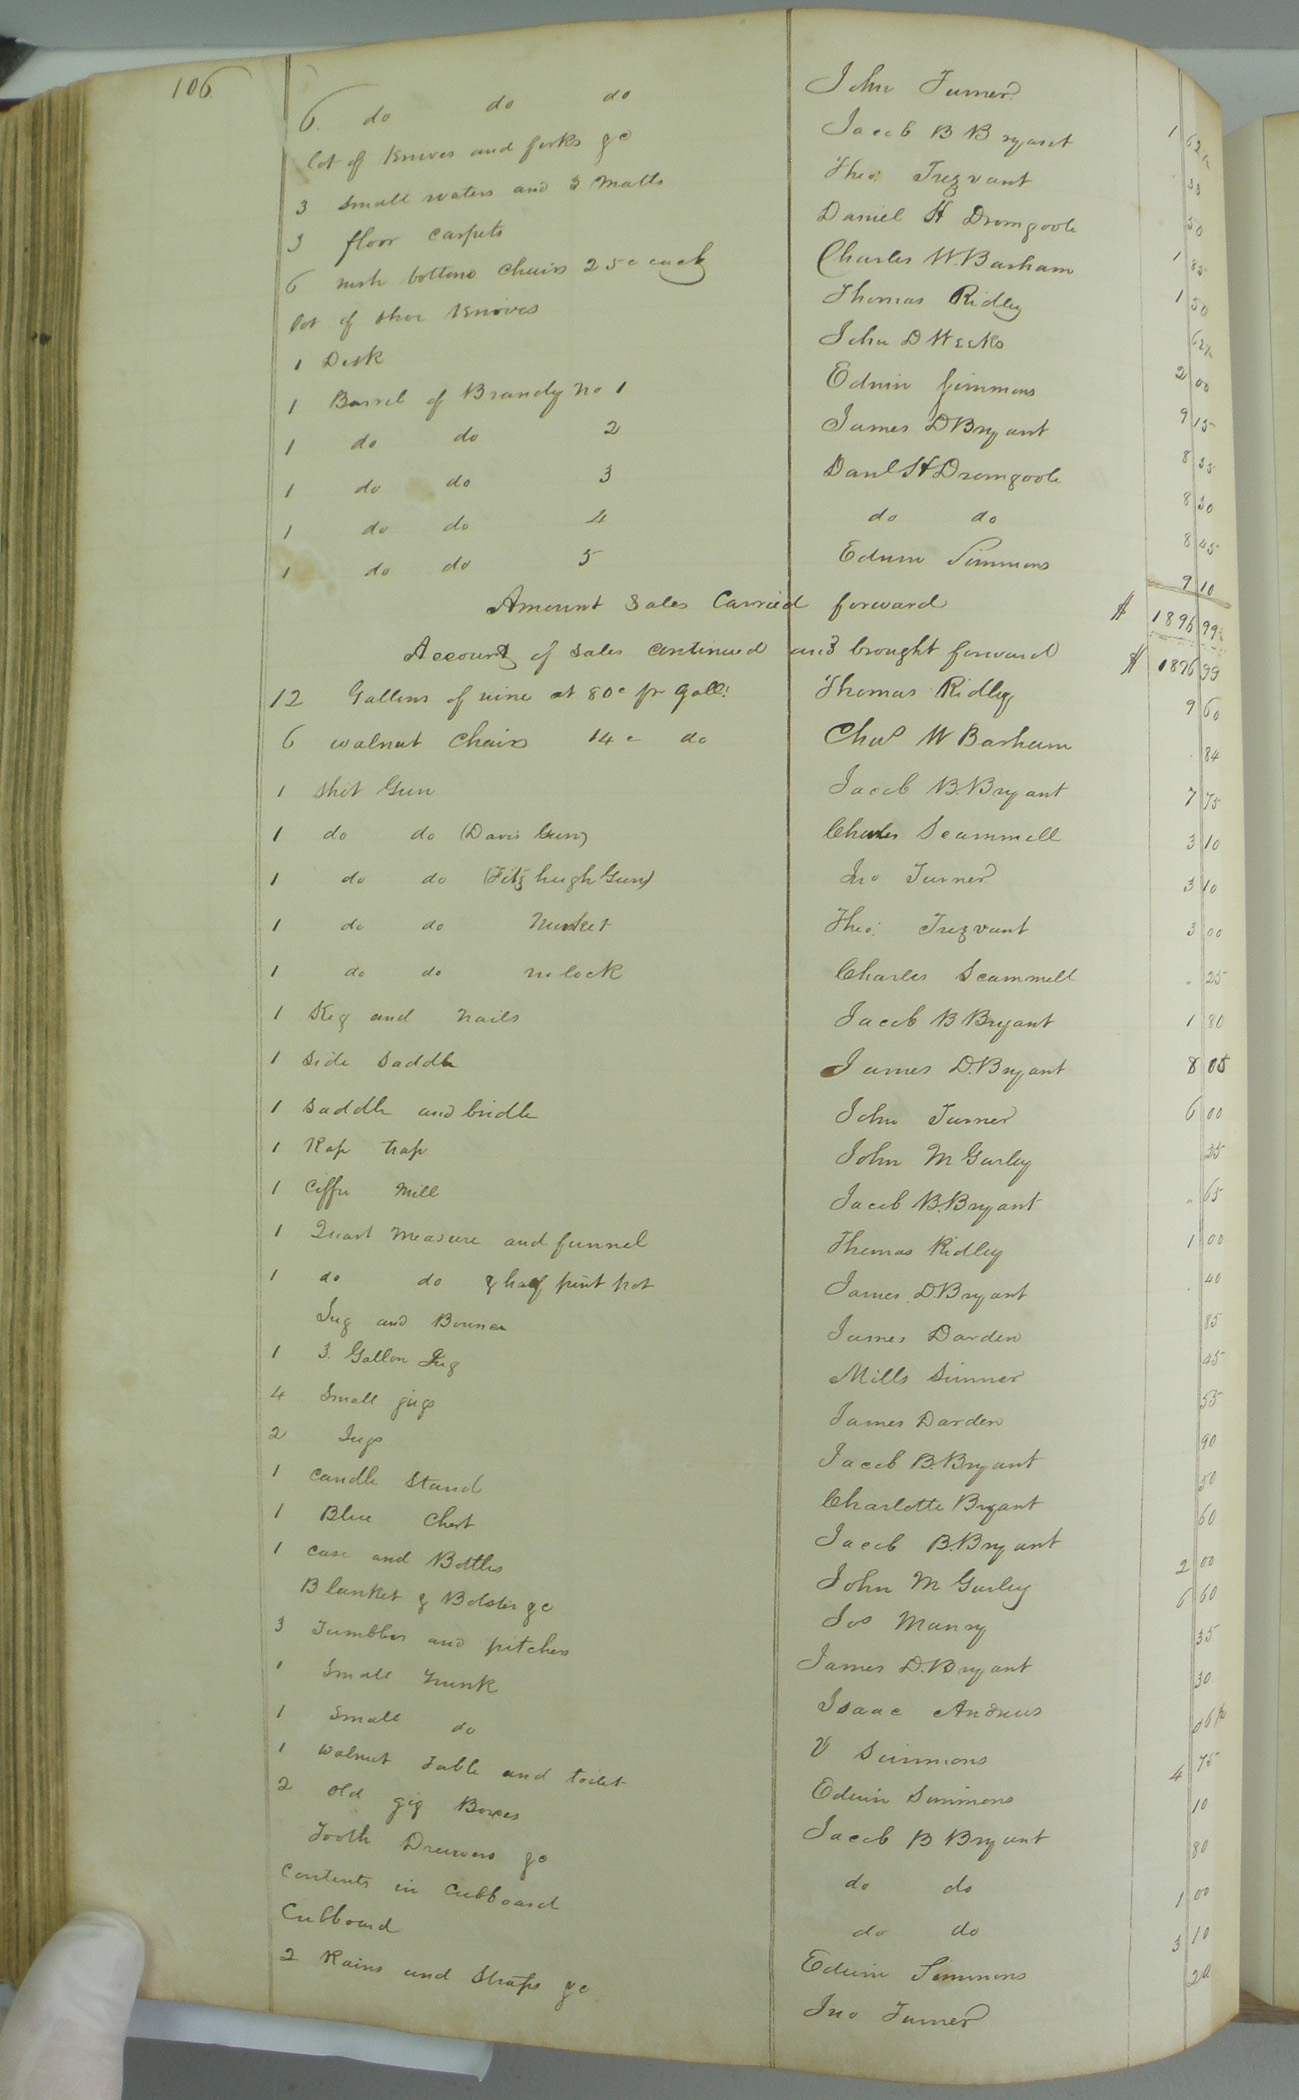 106
6 do do do John Turner 1 62½
lot of Knives and forks &c Jacob B Bryant
3 small waters and 3 Matts Theo: Trezvant 50
3 floor carpets Daniel H Dromgoole 1 85
6 rush bottom Chairs 25c each Charles W. Barham 1 50
lot of shoe Knives Thomas Ridley 62½
1 Desk John D Weeks 2 00
1 Barrel of Brandy No 1 Edwin Simmons 9 15
1 do do 2 James D Bryant 8 55
1 do do 3 Danl H Dromgoole 8 50
1 do do 4 do do 8 45
1 do do 5 Edwin Simmons 9 10
Amount Sales Carried forward $ 1896 99½
Account of Sales continued and brought forward $ 1896 99
12 Gallons of wine at 80c pr gall: Thomas Ridley 9 60
6 walnut Chairs 14c do Chas W Barham 84
1 Shot Gun Jacob B. Bryant 7 75
1 do do (Davis Gun) Charles Scammell 3 10
1 do do (Fitzhugh Gun) Jno Turner 3 10
1 do do Musket Theo: Trezvant 3 00
1 do do no lock Charles Scammell 25
1 Keg and nails Jacob B Bryant 1 80
1 Side Saddle James D. Bryant 8 05
1 Saddle and bridle John Turner 6 00
1 Rap trap John M Gurley 25
1 Coffee Mill Jacob B. Bryant 65
1 Quart Measure and funnel Thomas Ridley 1 00
1 do do & half pint pot James D. Bryant 40
Jug and James Darden 85
1 3. Gallon Jug Mills Sumner 45
4 Small jugs James Darden 55
2 Jugs Jacob B. Bryant 90
1 candle Stand Charlotte Bryant 50
1 Blue Chest Jacob B. Bryant 60
1 case and Bottles John M Gurley 2 00
Blanket & Bolster &c Jos Manry 6 60
3 Tumblers and pitchers James D. Bryant 35
1 Small Trunk Isaac Andrews 30
1 Small do V Simmons
1 walnut Table and toilet Edwin Simmons 4 75
2 old gig Boxes Jacob B Bryant 10
Tooth Drawers &c do do 80
Contents in Cubboard do do 1 00
Cubboard Edwin Simmons 3 10
2 Rains and Straps &c Jno Turner 20